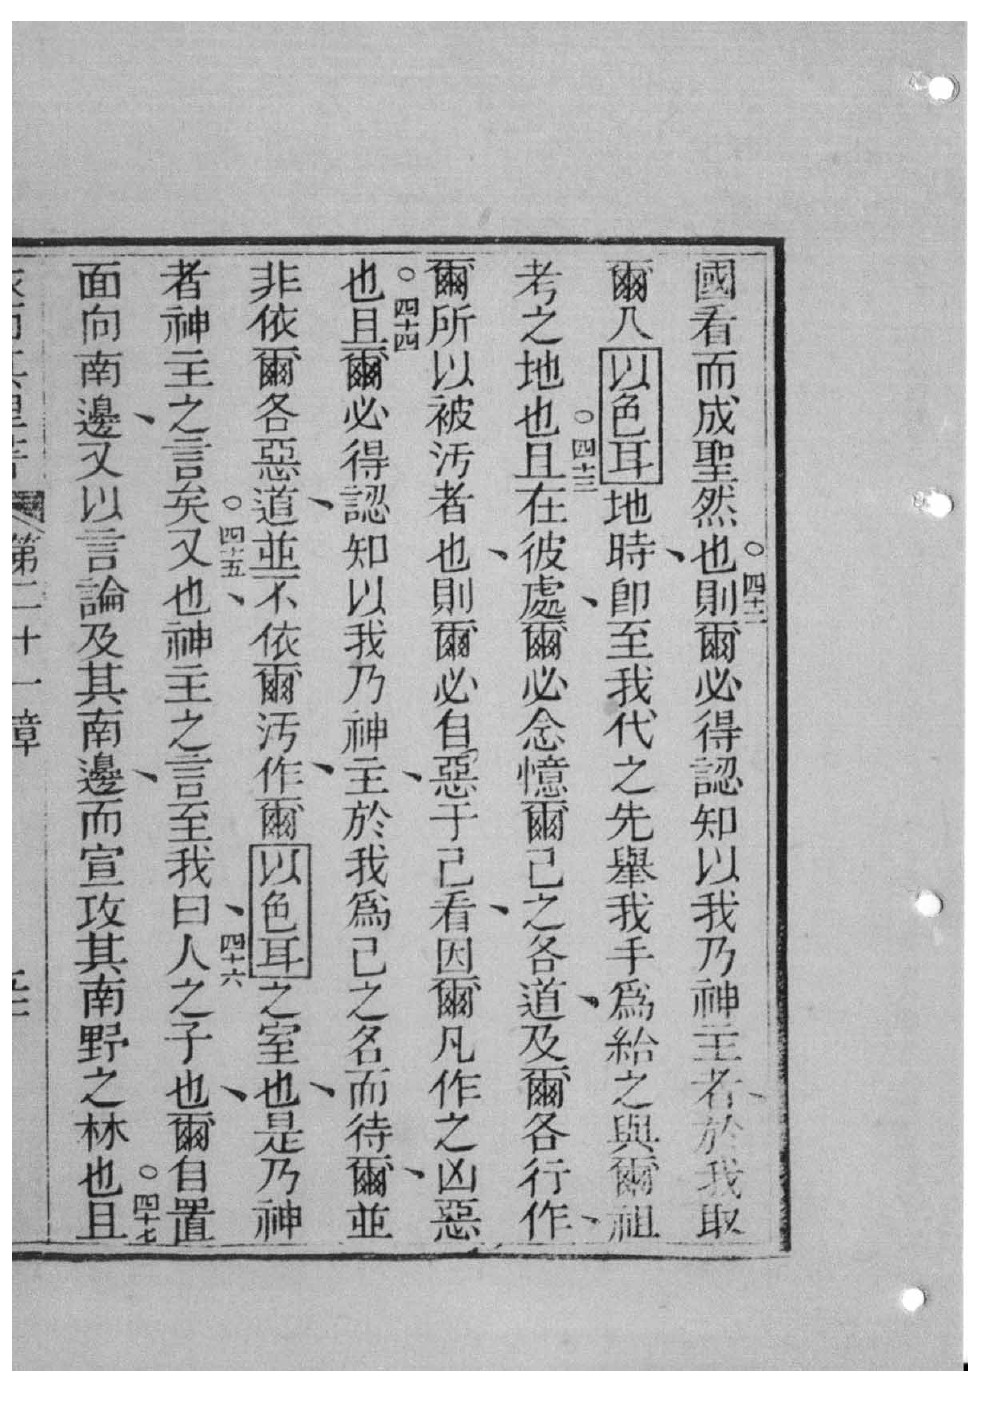 國看而成聖然也○四十二則爾必得認知以我乃神主者、於我取
爾入以色耳地時、卽至我代之先舉我手爲給之與爾祖
考之地也○四十三且在彼處、爾必念憶爾己之各道、及爾各行作、
爾所以被汚者也、則爾必自惡于己看、因爾凡作之凶惡
也○四十四且爾必得認知以我乃神主、於我爲己之名而待爾、並
非依爾各惡道、並不依爾汚作、爾以色耳之室也、是乃神
者神主之言矣○四十五又也、神主之言至我曰、四十六人之子也、爾自置
面向南邊、又以言論及其南邊、而宣攻其南野之林也○四十七且
第二十一章